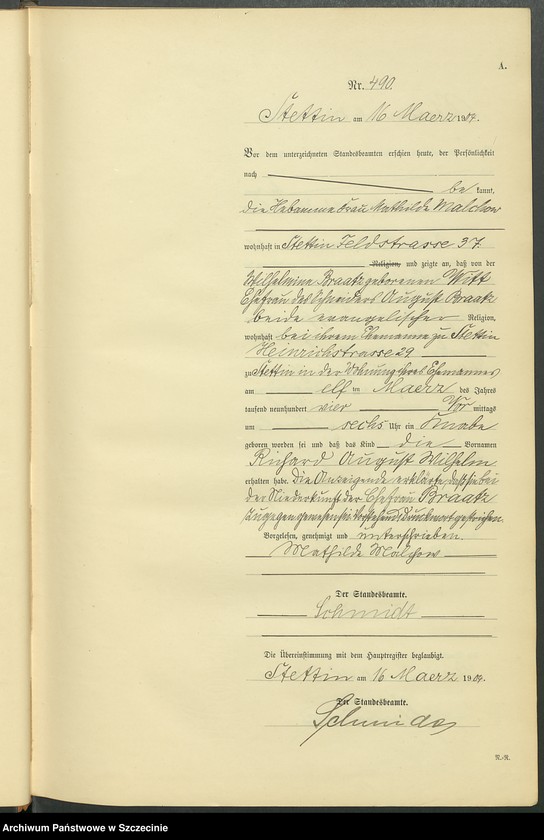 A.
Nr. 490.
Stettin am 16 Maerz 1904.
Vor dem unterzeichneten Standesbeamten erschien heute, der Persönlichkeit
nach
be kannt,
die Hebamme Frau Mathilde Malchow
wohnhaft in Stettin Feldstrasse 37.
Religion, und zeigte an, daß von der
Wilhelmine Braatz geborenen Witt
Ehefrau des Schneiders August Braatz
beide evangelischer Religion,
wohnhaft bei ihrem Ehemanne zu Stettin
Heinrichstrasse 29
zu Stettin in der Wohnung ihres Ehemannes
am elf ten Maerz des Jahres
tausend neunhundert vier Vor mittags
um sechs Uhr ein Knabe
geboren worden sei und daß das Kind die Vornamen
Richard August Wilhelm
erhalten habe. Die Anzeigende erklärte, daß sie bei
der Niederkunft der Ehefrau Braatz
zugegen gewesen sei. Vorstehend Druckwort gestrichen.
Vorgelesen, genehmigt und unterschrieben.
Mathilde Malchow
Der Standesbeamte.
Schmidt
Die Übereinstimmung mit dem Hauptregister beglaubigt.
Stettin am 16 Maerz 1904.
Der Standesbeamte.
N.-R.
Archiwum Państwowe w Szczecinie